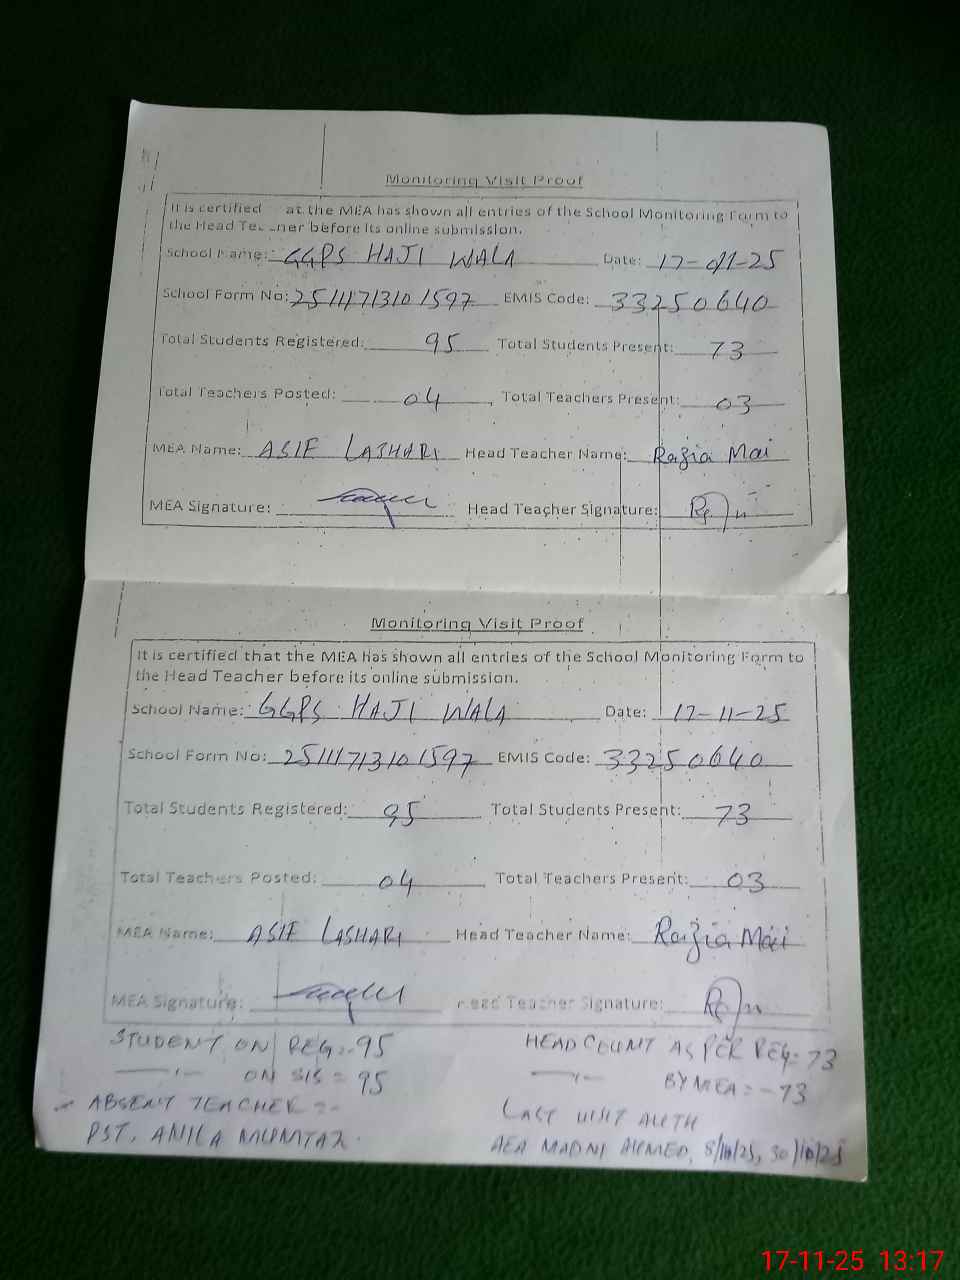 Monitoring Visit Proof
It is certified at the MEA has shown all entries of the School Monitoring Form to
the Head Te ner before its online submission.
School Name: GGPS HAJI WALA Date: 17-11-25
School Form No: 2511171310 1597 EMIS Code: 33250640
Total Students Registered: 95 Total Students Present: 73
Total Teachers Posted: 04 Total Teachers Present: 03
MEA Name: ASIF LASHARI Head Teacher Name: Razia Mai
MEA Signature: Head Teacher Signature:
Monitoring Visit Proof
It is certified that the MEA has shown all entries of the School Monitoring Form to
the Head Teacher before its online submission.
School Name: GGPS HAJI WALA Date: 17-11-25
School Form No: 2511171310 1597 EMIS Code: 33250640
Total Students Registered: 95 Total Students Present: 73
Total Teachers Posted: 04 Total Teachers Present: 03
MEA Name: ASIF LASHARI Head Teacher Name: Razia Mai
MEA Signature: Head Teacher Signature:
STUDENT ON REG:- 95 HEAD COUNT AS PER REG- 73
ON SIS = 95 BY MEA = - 73
ABSENT TEACHER =- LAST VISIT AUTH
PST, ANILA MUMTAZ. AEA MADNI AHMED, 8/10/25, 30/10/25
17-11-25 13:17